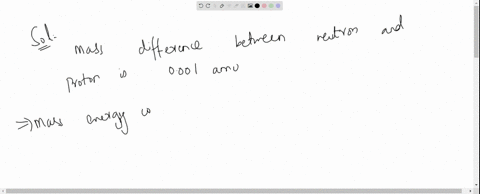 Sol.
mass difference between neutron and
proton is 0.001 amu
⇒ mass energy co